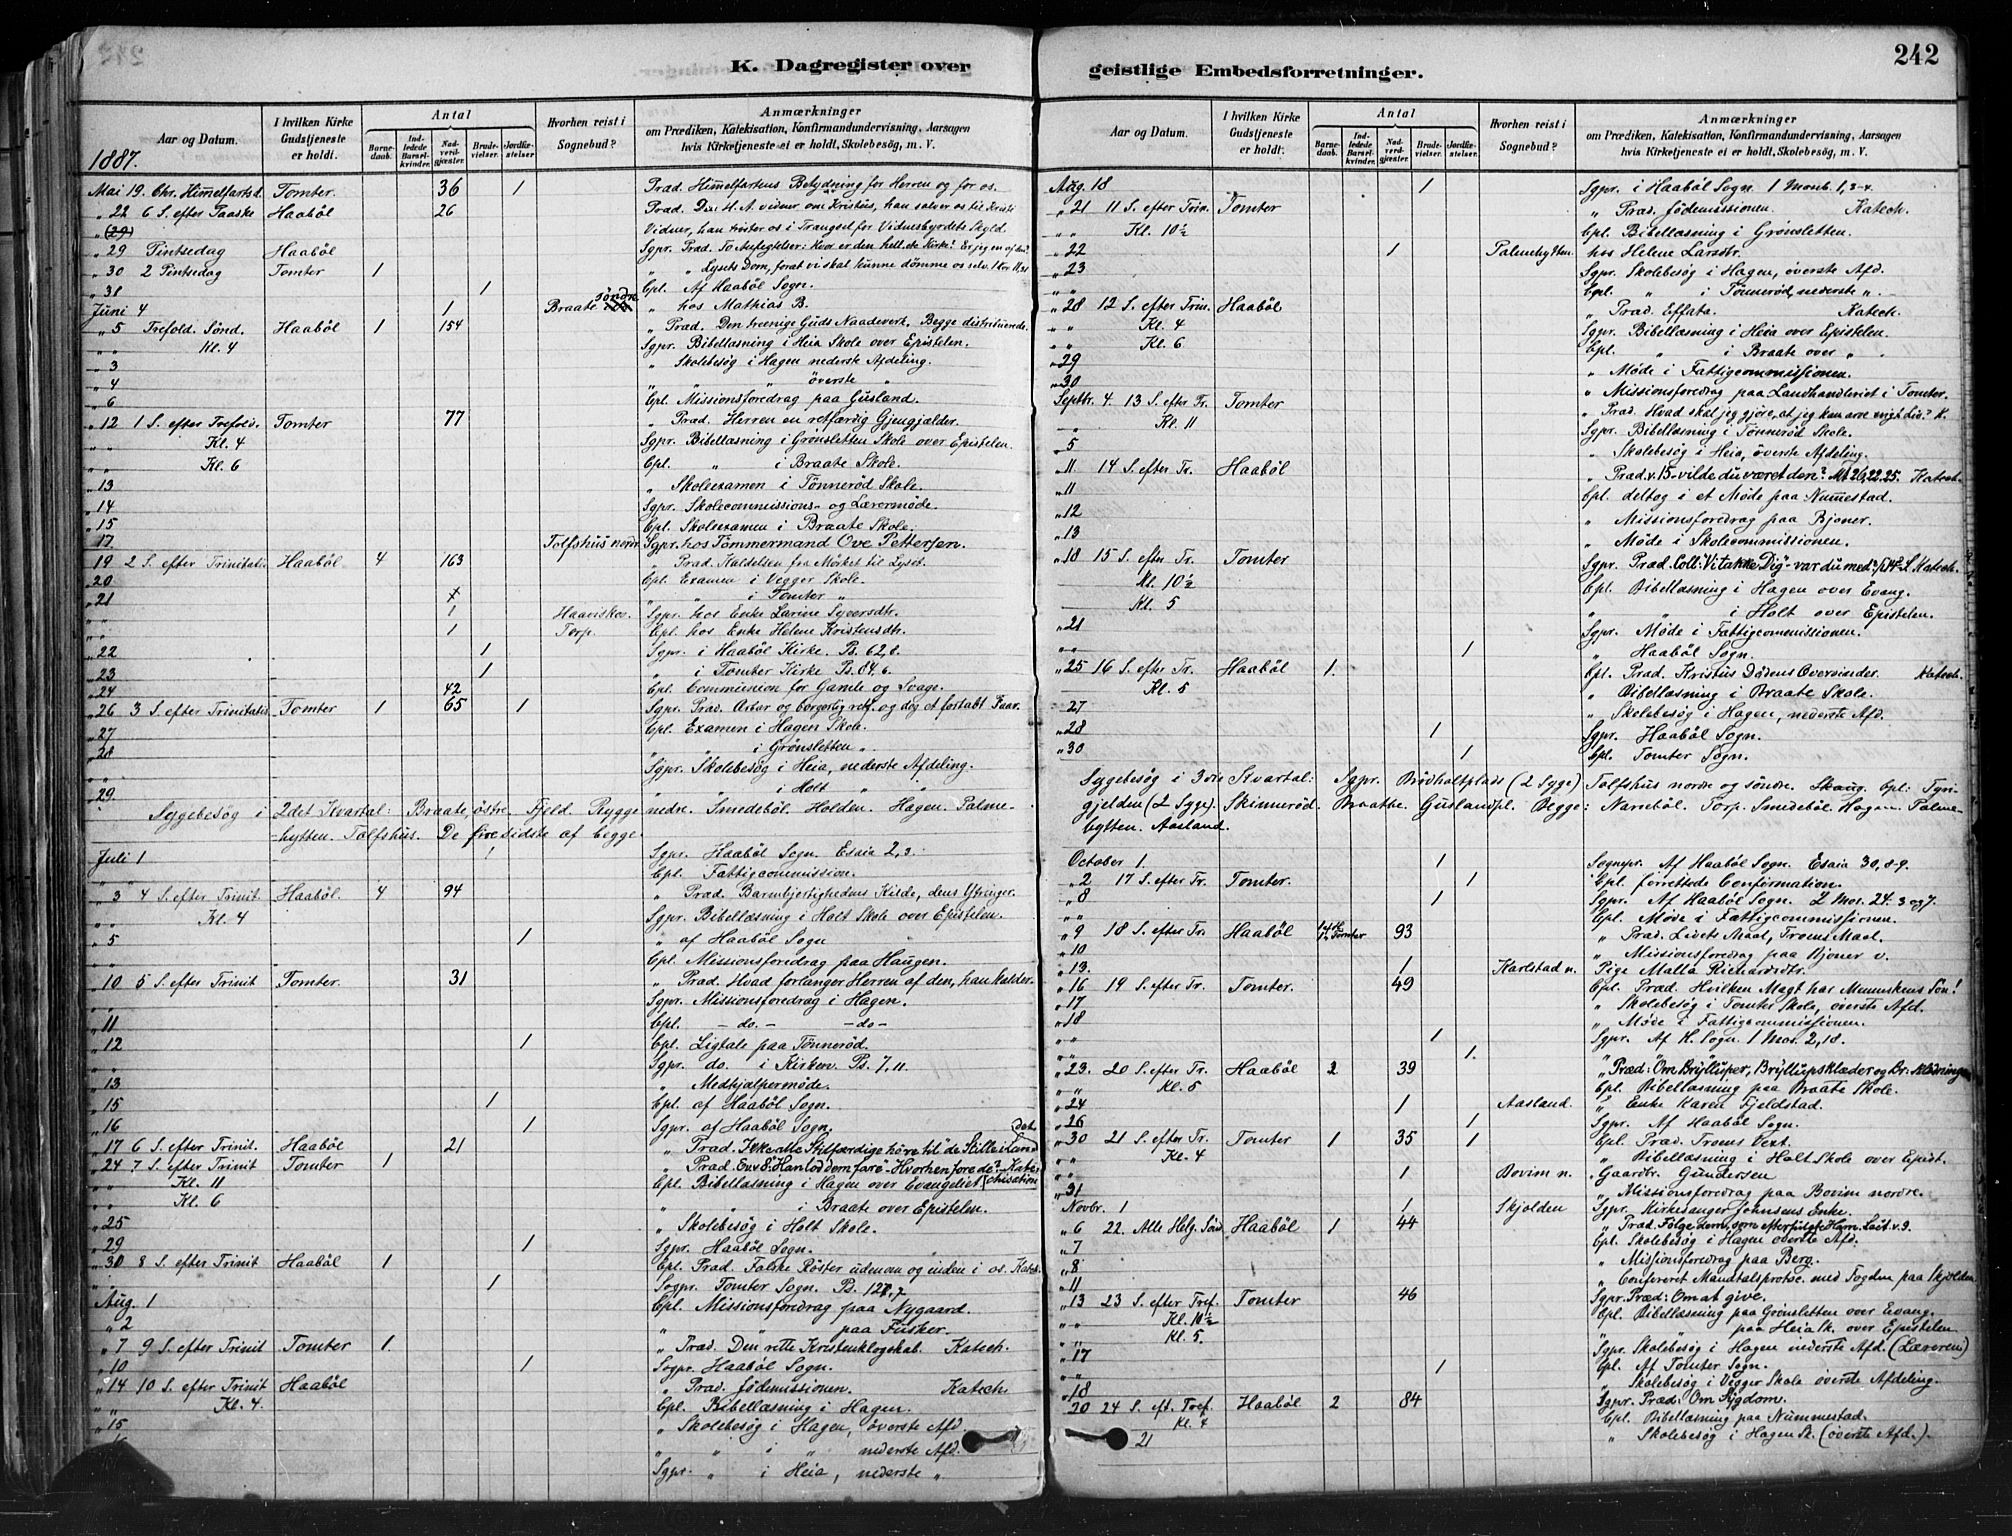 242
K. Dagregister over geistlige Embedsforretninger.
Aar og Datum. I hvilken Kirke Gudstjeneste er holdt. Antal Barnedaab. Indledede Barselkvinder. Nadverdgjæster. Brudevielser. Jordfæstelser. Hvorhen reist i Sognebud? Anmærkninger om Prædiken, Katekisation, Konfirmandundervisning, Aarsagen hvis Kirketjeneste ei er holdt, Skolebesøg, m. V.
1887.
Mai 19. Chr. Himmelfartsd. Tomter 36 1 Præd. Himmelfartens Betydning for Herren og for os.
" 22 6 S. efter Paaske Haabøl 26 Præd. Den H. A. vidner om Kristus, han salver os til Kristi
" (29) Vidner, han trøster os i Trængsel for Vidnesbyrdets Skyld.
" 29 Pintsedag Haabøl Sgpr. Præd. To Asfigelser: Hvor er den hell. de Kirke? Er jeg en af den?
" 30 2 Pintsedag Tomter 1 " " Lysets Dom, forat vi skal kunne dømme os selv. 1 Kor 11,31
" 31 1 Cpl. Af Haabøl Sogn.
Juni 4 1 Braate søndr. " hos Mathias B.
" 5 Trefold. Sønd. Haabøl 1 154 " Præd. Den treenige Guds Naadeverk. Begge distribuende.
" " Kl. 4 Sgpr. Bibellæsning i Heia Skole over Epistelen.
" 3 " Skolebesøg i Hagen nederste Afdeling.
" 4 " " " øverste "
" 6 Cpl. Missionsforedrag paa Gusland.
" 12 1 S. efter Trefold. Tomter 77 " Præd. Herren en retfærdig Gjengjælder.
" " Kl. 4 Sgpr. Bibellæsning i Grønsletten Skole over Epistelen.
" " Kl. 6 Cpl. " i Braate Skole.
" 13 " Skoleexamen i Tønnerød Skole.
" 14 Sgpr. Skolecommissions- og Lærermøde.
" 15 Cpl. Skoleexamen i Braate Skole.
" 17 Tolfshus nordr. Sgpr. hos Tømmermand Ove Pettersen.
" 19 2 S. efter Trinitatis Haabøl 4 163 " Præd. Kaldelsen fra Mørket til Lyset.
" 20 Cpl. Examen i Vegger Skole.
" 21 " " i Tomter "
" " 1 Haaviskov. Sgpr. hos Enke Larine Syversdtr.
" " 1 Torp. Cpl. hos Enke Helene Kristensdtr.
" 22 1 Sgpr. i Haabøl Kirke. Ps. 62,8.
" 23 1 " i Tomter Kirke Ps. 84,6.
" 24 42 Cpl. Communion for Gamle og Svage.
" 26 3 S. efter Trinitatis Tomter 1 65 1 Sgpr. Præd. Ærbar og borgerlig retf. og dog et fortabt Faar.
" 27 Cpl. Examen i Hagen Skole.
" 28 " " i Grønsletten "
" " Sgpr. Skolebesøg i Heia, nederste Afdeling.
" 29. " " i Holt " "
Sygebesøg i 2det Kvartal: Braate, østre. Fjeld. Rygge nedre. Smedebøl. Holden. Hagen. Palme-
hytten. Tolfshus. De fire sidste af begge.
Juli 1 1 Sgpr. Haabøl Sogn. Esaia 2,3.
" " Cpl. Fattigcommission.
" 3 4 S. efter Trinit. Haabøl. 4 94 " Præd. Barmhjertighedens Kilde, dens Ytringer.
" " Kl. 4 Sgpr. Bibellæsning i Holt Skole over Epistelen.
" 5 1 " af Haabøl Sogn
" " Cpl. Missionsforedrag paa Haugen.
" 10 5 S. efter Trinit Tomter. 31 " Præd. Hvad forlanger Herren af den, han kalder.
" " Sgpr. Missionsforedrag i Hagen.
" 11 Cpl. - do. - - do -
" 12 1 Cpl. Ligtale paa Tønnerød.
" " Sgpr. do. i Kirken Ps. 7,11.
" 13 " Medhjælpermøde.
" 15 1 Cpl. af Haabøl Sogn.
" 16 1 Sgpr. af Haabøl Sogn.
" 17 6 S. efter Trinit. Haabøl 21 " Præd. Ikke alle Stilfærdige høre til "de Stille i Landet
" 24 7 S. efter Trinit Tomter 1 " Præd. Ev. 8: Han lod dem fare - Hvorhen fore de? - Kate-
" " Kl. 11 Cpl. Bibellæsning i Hagen over Evangeliet (chisation
" " Kl. 6 " " i Braate over Epistelen.
" 25 " Skolebesøg i Holt Skole.
" 29 1 Sgpr. Haabøl Sogn.
" 30 8 S. efter Trinit Haabøl 1 Cpl. Præd. Falske Røster udenom og inden i os. Katech.
" 1 Sogpr. Tomter Sogn. Ps. 127,7
Aug. 1 Cpl. Missionsforedrag paa Nygaard.
" 2 " " paa Fusker.
" 7 9 S. efter Trinit Tomter 1. " Præd. Den rette Kristenklogskab. Katech.
" 10 1 Sogpr. Haabøl Sogn.
" 14 10 S. efter Trinit Haabøl " Præd. Jødemissionen. Katech.
" " Kl. 4. Cpl. Bibellæsning i Hagen.
" 15 " Skolebesøg i Hagen, øverste Afd.
" " i " nederste Afd.
Sgpr. " i Heia, nederste "
Aar og Datum. I hvilken Kirke Gudstjeneste er holdt. Antal Barnedaab. Indledede Barselkvinder. Nadverdgjæster. Brudevielser. Jordfæstelser. Hvorhen reist i Sognebud? Anmærkninger om Prædiken, Katekisation, Konfirmandundervisning, Aarsagen hvis Kirketjeneste ei er holdt, Skolebesøg, m. V.
Aug. 18 1 Sgpr. i Haabøl Sogn. 1 Moseb. 1, 3-4.
" 21 11 S. efter Trin. Tomter " Præd. Jødemissionen. Katech.
" " Kl. 10½ Cpl. Bibellæsning i Grønsletten.
" 22 1 Palmehytten. hos Helene Larsdtr.
" 23 Sgpr. Skolebesøg i Hagen, øverste Afd.
" " Cpl. " i Tønnerød, nederste ".
" 28 12 S. efter Trin. Haabøl " Præd. Effata. Katech.
" " Kl. 4 Sgpr. Bibellæsning i Heia over Epistelen.
" " Kl. 6 Cpl. " i Braate over "
" 29 " Møde i Fattigcommissionen.
" 30 " Missionsforedrag paa Landhandleriet i Tomter.
Septbr. 4. 13 S. efter Tr. Tomter " Præd. Hvad skal jeg gjøre, at jeg kan arve evigt Liv? K.
" Kl. 11 Sgpr. Bibellæsning i Tønnerød Skole.
" 5 " Skolebesøg i Heia, øverste Afdeling.
" 11 14 S. efter Tr. Haabøl " Præd. v. 15 - vilde du været den? Mt 26,22.25. Katech.
" 11 Cpl. deltog i et Møde paa Nummestad.
" 12 " Missionsforedrag paa Bjoner.
" 13 " Møde i Skolecommissionen.
" 18 15 S. efter Tr. Tomter Sgpr. Præd. Coll: "Vi takke Dig" - var du med? Katech.
Kl. 10½ Cpl. Bibellæsning i Hagen over Evang.
Kl. 5 " " i Holt over Epistelen.
" 21 Sgpr. Møde i Fattigcommissionen.
" " 1 " Haabøl Sogn.
" 25 16 S. efter Tr. Haabøl 1. Cpl. Præd. Kristus Dødens Overvinder. Katech.
Kl. 5 " Bibellæsning i Braate Skole.
" 27 " Skolebesøg i Hagen, nederste Afd.
" 28 1 Sgpr. Haabøl Sogn.
" 30 1 Cpl. Tomter Sogn.
Sygebesøg i 3die Kvartal: Sgpr. Brødholtplads (2 Syge) Tolfshus nordre og søndre. Skaug. Cpl: Tyri-
gjelden (2 Syge). Skinnerød. Braatke. Guslandpl. Begge: Narrebøl. Torp. Smedebøl. Hagen. Palme-
hytten. Aasland.
October 1. 1 Sognepr. Af Haabøl Sogn. Esaia 30, 8-9.
" 2 17 S. efter Tr. Tomter. 1 Cpl. forrettede Confirmation.
" 8 1 Sgpr. Af Haabøl Sogn. 2 Mos. 24. 3 og 7.
" " Cpl. Møde i Fattigcommissionen.
" 9 18 S. efter Tr. Haabøl 93 " Præd. Livets Maal, Troens Maal.
" 10 " Missionsforedrag paa Bjoner v.
" 13. 1 Karlstad n. Pige Malla Rickardsdtr.
" 16 19 S. efter Tr. Tomter. 49 Cpl. Præd. Hvilken Magt har Menneskens Søn!
" 17 " Skolebesøg i Tomter Skole, øverste Afd.
" 18 " Møde i Fattigcommissionen.
" " 1 Sgpr. Af H. Sogn. 1 Mos. 2, 18.
" " 1. " " "
" 23. 20 S. efter Tr. Haabøl 2 39 " Præd: Om Bryllupper, Bryllupsklæder og Br: Klædningen
" " Kl. 5 Cpl. Bibellæsning paa Braate Skole.
" 24 1 Aasland. " Enke Karen Fjeldstad.
" 26 1 Sgpr. Af Haabøl Sogn.
" 30 21 S. efter Tr. Tomter 1 35 1 Cpl. Præd. Troens Vext.
" " Kl. 4 " Bibellæsning i Holt Skole over Epist.
" " 1 Bovim n. " Gaardbr. Gundersen
" 31 " Missionsforedrag paa Bovim nordre.
Novbr. 1 1 Skjolden Sgpr. Kirkesanger Johnsens Enke.
" 6 22. Alle Helg. Sønd Haabøl 1 44 " Præd. Følge dem, som efterfulgte Ham.
" 7 Cpl. Skolebesøg i Hagen øverste Afd.
" 8 " Missionsforedrag paa Berg.
" 11 " Confereret Mandtalsprotoc. med Fogden paa Skjolden
" 13 23 S. efter Tref. Tomter 46 Sgpr. Præd: Om at give.
" " Kl. 10½ Cpl. Bibellæsning paa Grønsletten over Evang.
" " Kl. 5. " " paa Heia Sk. over Epistelen
" 17 Sgpr. Skolebesøg i Hagen nederste Afd. (Læreren)
" " 1 Cpl. Af Tomter Sogn.
" 18 " Skolebesøg i Vegger Skole øverste Afdeling.
" 20 24 S. eft. Tref. Haabøl 2 84 Sgpr. Præd: Om Sygdom.
Kl. 4 Cpl. Bibellæsning paa Nummestad.
" 21 " Skolebesøg i Hagen Sk. (øverste Afd.).